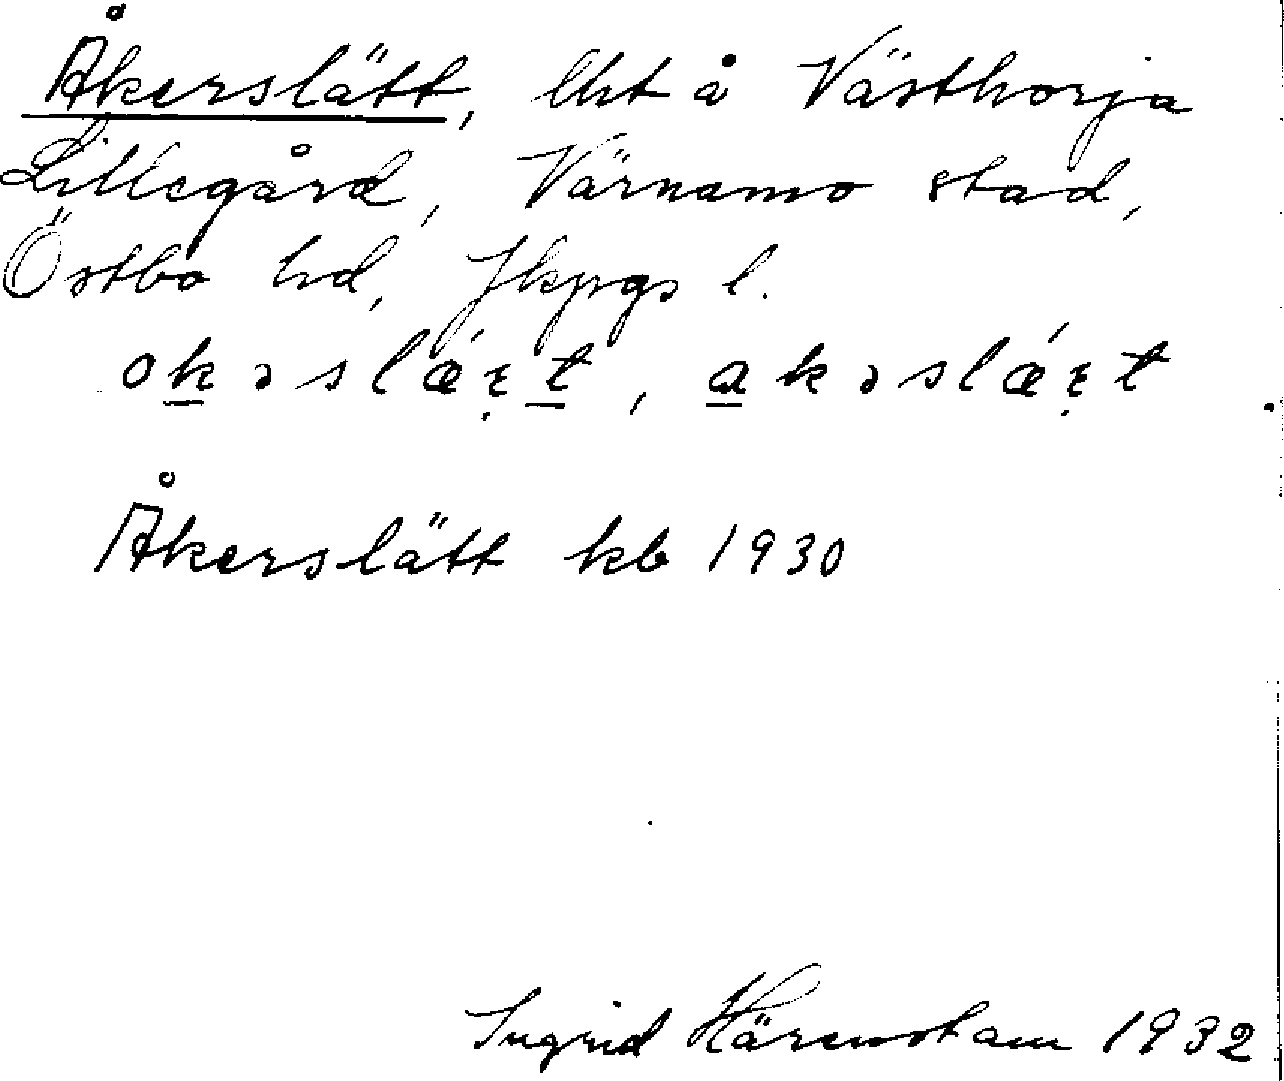 Åkerslätt, lht å Västhorja
Lillegård, Värnamo stad,
Östbo hd, Jkpgs l.
okəslǽɛ̣t, akəslǽɛ̣t
Åkerslätt kb 1930
Ingrid Härenstam 1932